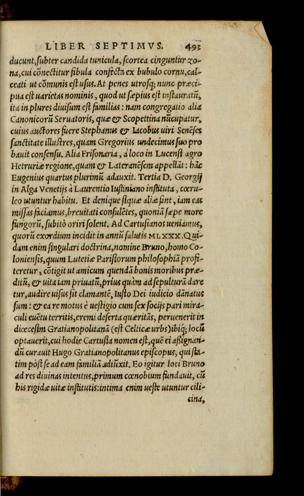 LIBER SEPTIMVS. 493
ducunt, subter candida tunicula, scortea cinguntur zo-
na, cui cōnectitur fibula confecta ex bubulo cornu, cal-
ceati ut cōmunis est usus. At penes utrosq; nunc præci-
pua est uarietas nominis, quod ut sæpius est instauratū,
ita in plures diuisum est familias: nam congregatio alia
Canonicorū Seruatoris, quæ & Scopettina nūcupatur,
cuius auctores fuere Stephanus & Iacobus uiri Senēses
sanctitate illustres, quam Gregorius undecimus suo pro
bauit consensu. Alia Frisonaria, à loco in Lucensi agro
Hetruriæ regione, quam & Lateranēsem appellāt: hāc
Eugenius quartus plurimū adauxit. Tertia D. Georgij
in Alga Venetijs à Laurentio Iustiniano instituta, cœru-
leo utuntur habitu. Et denique siquæ aliæ sint, iam eas
missas faciamus, breuitati consulētes, quoniā sæpe more
fungorū, subitò oriri solent. Ad Cartusianos ueniamus,
quorū exordium incidit in annū salutis MLXXX. Qui-
dam enim singulari doctrina, nomine Bruno, homo Co-
loniensis, quum Lutetiæ Parisiorum philosophiā profi-
teretur, cōtigit ut amicum quendā bonis moribus præ-
ditū, & uita iam priuatū, prius quàm ad sepulturā dare
tur, audire uisus sit clamantē, Iusto Dei iudicio dānatus
sum: & ea re motus è uestigio cum sex socijs pari mira-
culi euētu territis, eremi deserta quæritās, peruenerit in
diœcesim Gratianopolitanā (est Celticæ urbs) ibiq; locū
optauerit, cui hodie Cartusia nomen est, quē ei assignan-
dū curauit Hugo Gratianopolitanus episcopus, qui sta-
tim pòst se ad eam familiā adiūxit. Eo igitur loci Bruno
ad res diuinas intentus, primum cœnobium fundauit, cū
his rigidæ uitæ institutis: intima enim ueste utuntur cili-
cina,